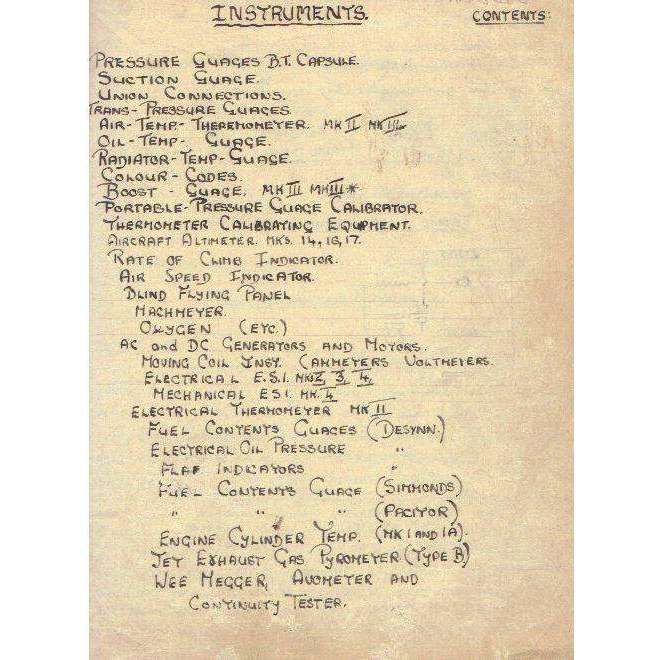 INSTRUMENTS. CONTENTS:
PRESSURE GUAGES B.T. CAPSULE.
SUCTION GUAGE.
UNION CONNECTIONS.
TRANS-PRESSURE GUAGES.
AIR-TEMP-THEREMOMETER. MK II MK III
OIL-TEMP- GUAGE.
RADIATOR-TEMP-GUAGE.
COLOUR-CODES.
BOOST - GUAGE. MK III MK III*
PORTABLE-PRESSURE GUAGE CALIBRATOR.
THERMOMETER CALIBRATING EQUIPMENT.
AIRCRAFT ALTIMETER. MKS. 14, 16, 17.
RATE OF CLIMB INDICATOR.
AIR SPEED INDICATOR.
BLIND FLYING PANEL
MACHMETER.
OXYGEN (ETC.)
AC and DC GENERATORS AND MOTORS.
MOVING COIL INST. (AMMETERS VOLTMETERS.
ELECTRICAL E.S.I. MKS 2, 3, 4,
MECHANICAL ESI. MK. 4
ELECTRICAL THERMOMETER MK II
FUEL CONTENTS GUAGES (DESYNN.)
ELECTRICAL OIL PRESSURE "
FLAP INDICATORS "
FUEL CONTENTS GUAGE (SIMMONDS)
" " " (PACITOR)
ENGINE CYLINDER TEMP. (MK 1 AND 1A).
JET EXHAUST GAS PYROMETER (TYPE B)
WEE MEGGER, AVOMETER AND
CONTINUITY TESTER.